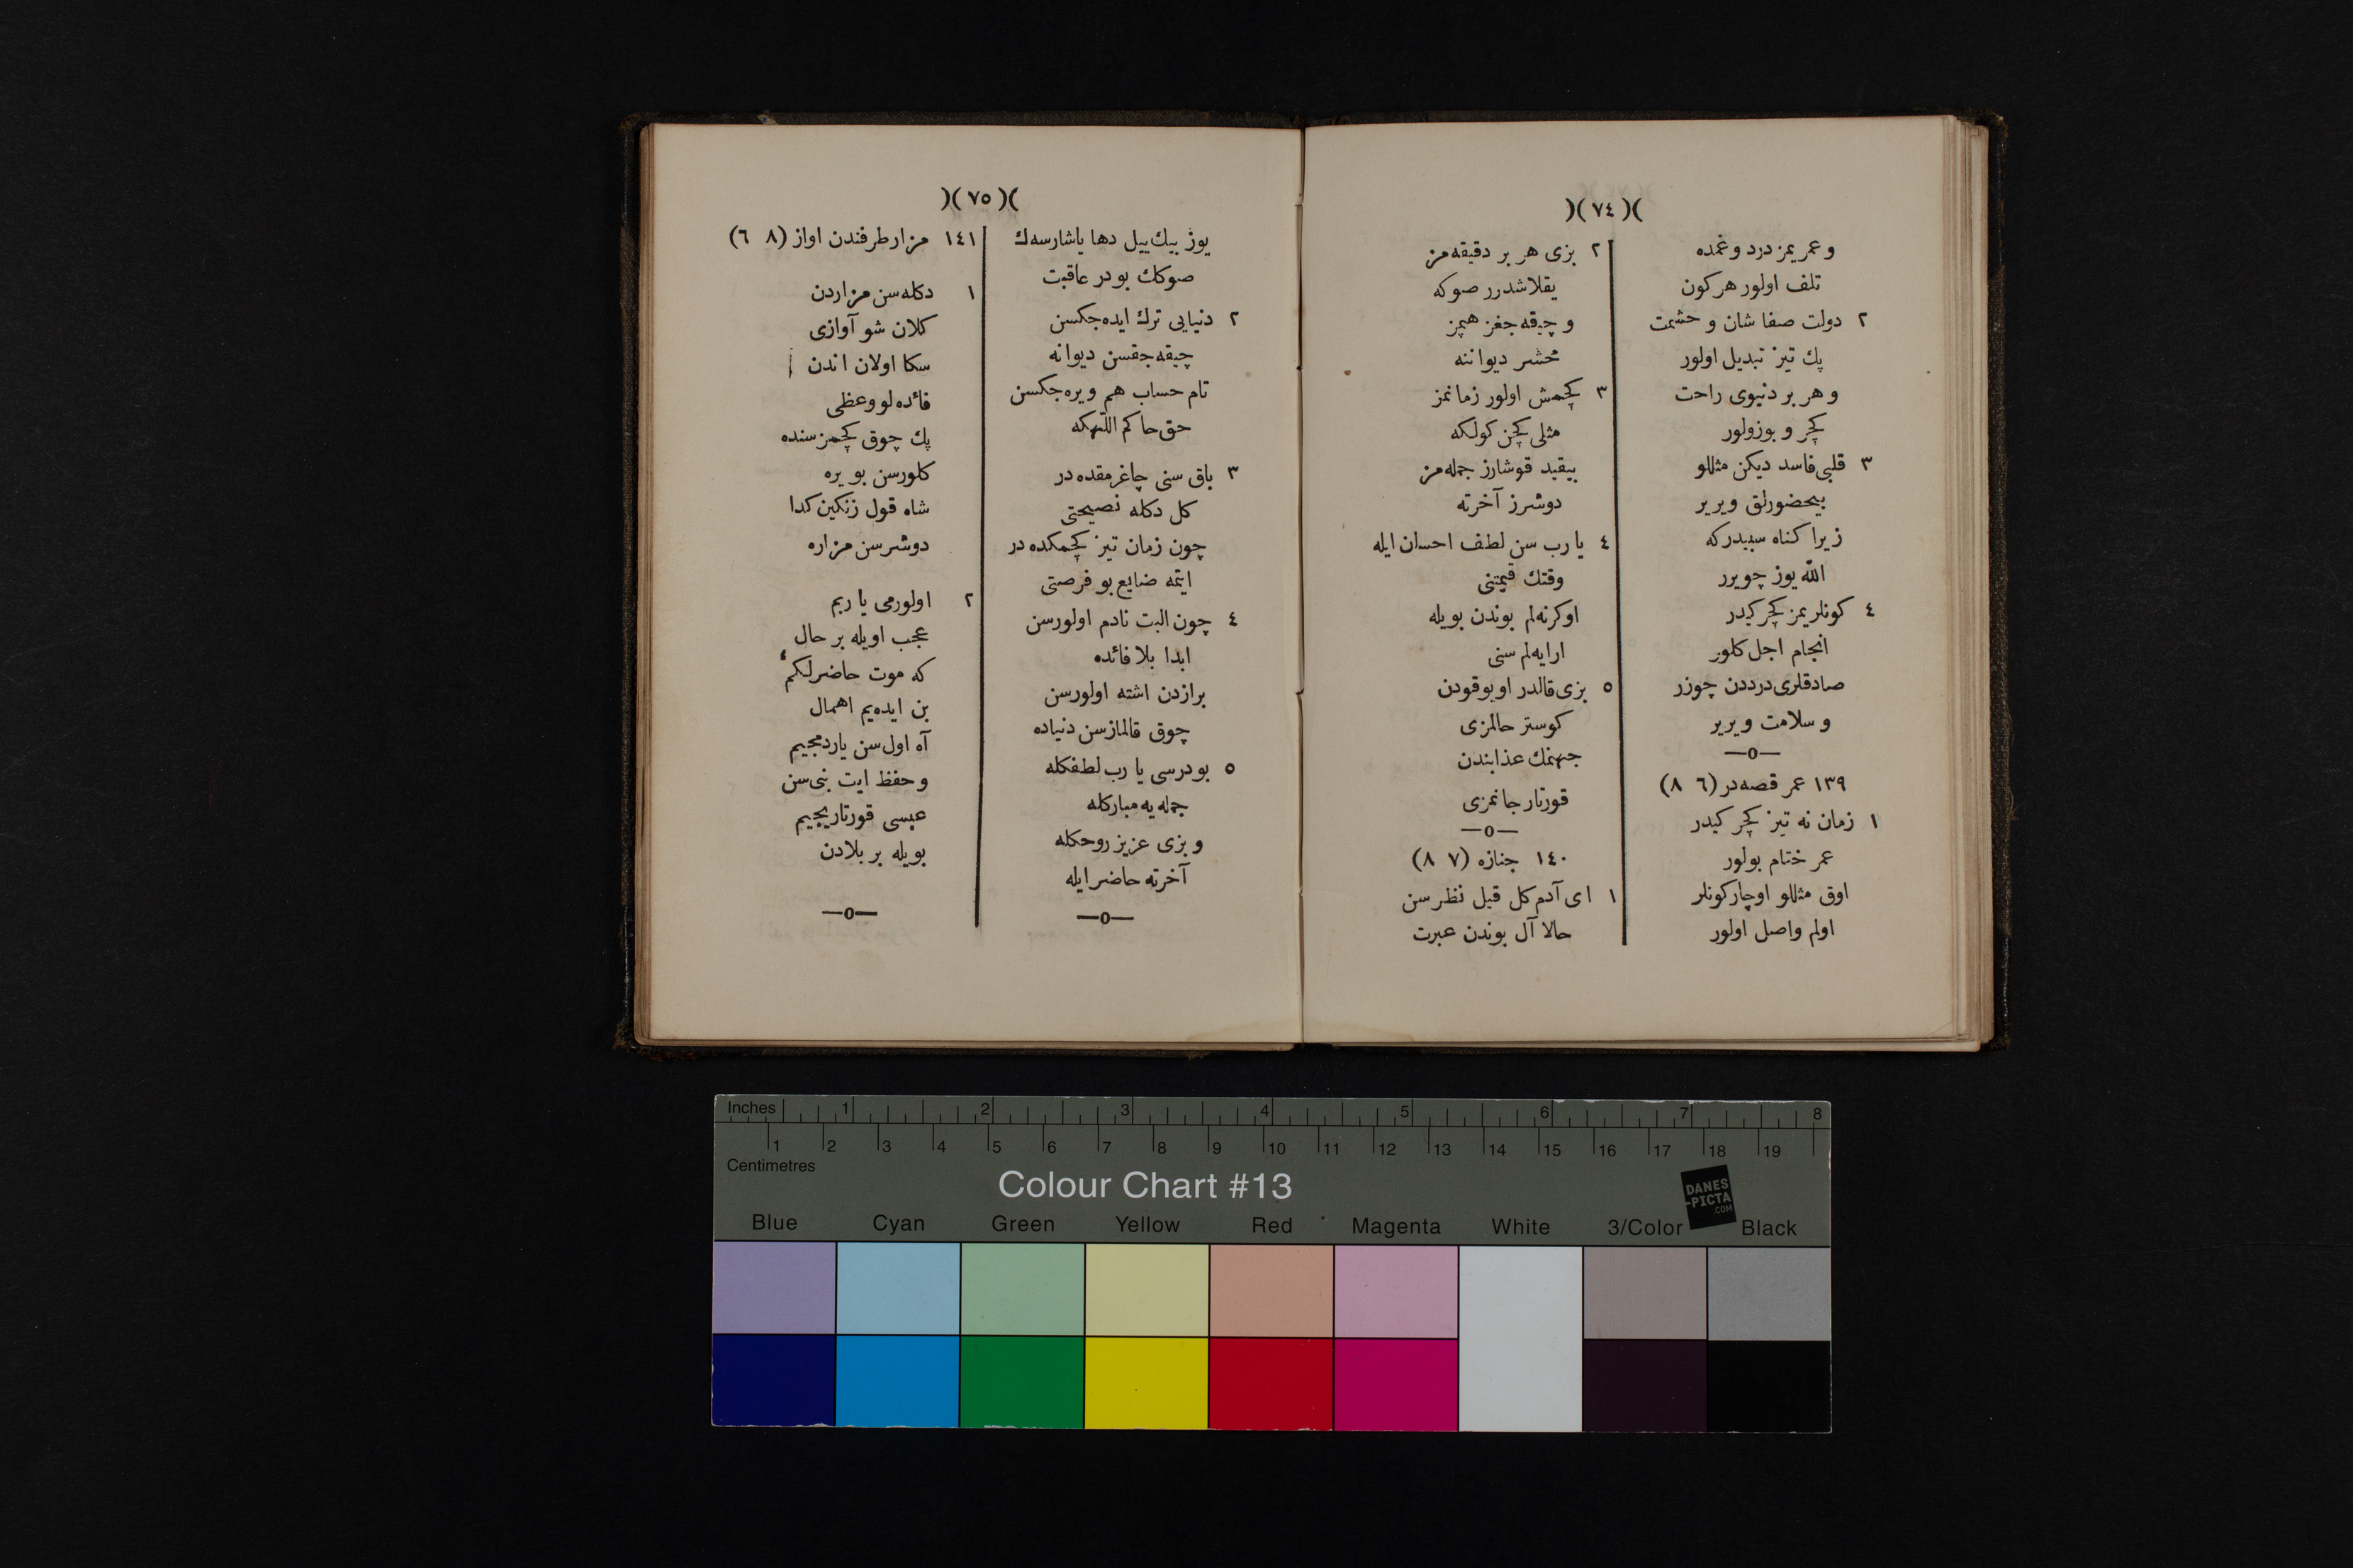 )( ٧٤ )(
و عمریمز درد و غمده
تلف اولور هر کون
٢ دولت صفا شان و حشمت
پك تیز تبدیل اولور
و هر بر دنیوی راحت
کچر و بوزولور
٣ قلبی فاسد دیکن مثللو
بیحضورلق ویریر
زیرا کناه سببدر که
الله یوز چویرر
٤ کونلریمز کچر کیدر
انجام اجل کلور
صادقلری درددن چوزر
و سلامت ویریر
—o—
١٣٩ عمر قصه در (٦ ٨)
١ زمان نه تیز کچر کیدر
عمر ختام بولور
اوق مثللو اوچار کونلر
اولم واصل اولور
٢ بزی هر بر دقیقه مز
یقلاشدرر صوکه
و چیقه جغز هپمز
محشر دیواننه
٣ کچمش اولور زمانمز
مثلی کچن کولکه
بیقید قوشارز جمله مز
دوشرز آخرته
٤ یا رب سن لطف احسان ایله
وقتك قیمتنی
اوکرنه لم بوندن بویله
ارایه لم سنی
٥ بزی قالدر اویوقودن
کوستر حالمزی
جهنمك عذابندن
قورتار جانمزی
—o—
١٤٠ جنازه (٧ ٨)
١ ای آدم کل قیل نظر سن
حالا آل بوندن عبرت
)( ٧٥ )(
یوز بیك ییل دها یاشارسه ك
صوکك بودر عاقبت
٢ دنیایی ترك ایده جکسن
چیقه جقسن دیوانه
تام حساب هم ویره جکسن
حق حاکم اللّٰهکه
٣ باق سنی چاغرمقده در
کل دکله نصیحتی
چون زمان تیز کچمکده در
ایتمه ضایع بو فرصتی
٤ چون البت نادم اولورسن
ابدا بلا فائده
برازدن اشته اولورسن
چوق قالمازسن دنیاده
٥ بو درسی یا رب لطفکله
جمله یه مبارکله
و بزی عزیز روحکله
آخرته حاضر ایله
—o—
١٤١ مزار طرفندن اواز (٨ ٦)
١ دکله سن مزاردن
کلان شو آوازی
سکا اولان اندن
فائده لو وعظی
پك چوق کچمز سنده
کلورسن بو یره
شاه قول زنکین کدا
دوشرسن مزاره
٢ اولورمی یا ربم
عجب اویله بر حال
که موت حاضرلکم
بن ایده یم اهمال
آه اول سن یاردمجیم
و حفظ ایت بنی سن
عیسی قورتاریجیم
بویله بر بلادن
—o—
Inches 1 2 3 4 5 6 7 8
1 2 3 4 5 6 7 8 9 10 11 12 13 14 15 16 17 18 19
Centimetres
Colour Chart #13
DANES
-PICTA
.COM
Blue Cyan Green Yellow Red Magenta White 3/Color Black